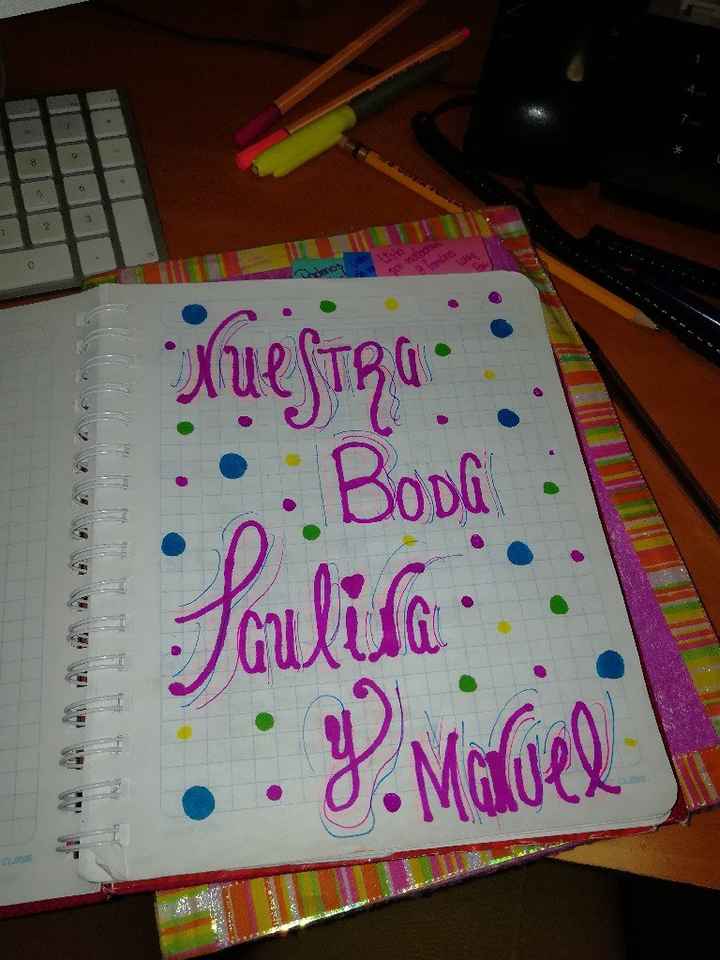 Nuestra
Boda
Paulina
y Manuel